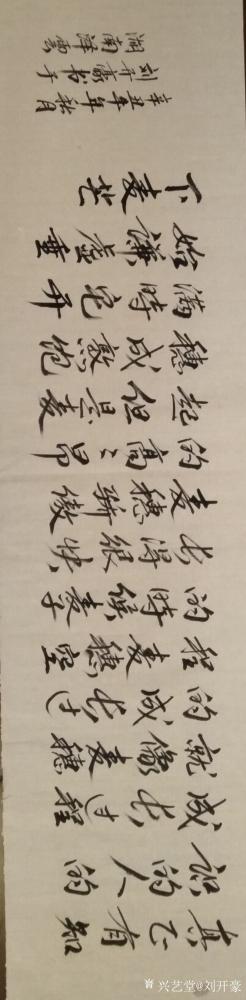 真正有知
识的人的
成长过程
就像麦穗
的成长过
程麦穗空
的時候麦子
长得很快
麦穗骄傲
的高々昂
起但是麦
穗成熟饱
满時它开
始謙虚垂
下麦芒
辛丑年秋月
刘开豪书于
湖南洋雲
兴艺堂@刘开豪